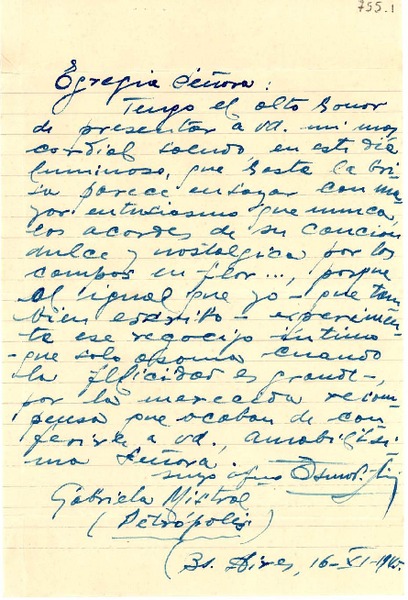 755.1
Egregia Señora:
Tengo el alto honor
de presentar a vd. mi muy
cordial saludo, en este día
luminoso, que hasta la bri
sa parece ensayar con ma
yor entusiasmo que nunca,
los acordes de su canción
dulce y nostálgica por los
campos en flor..., porque
al igual que yo - que tam
bién escribo - experimen
ta ese regocijo íntimo
- que solo asoma cuando
la felicidad es grande -,
por la merecida recom
pensa que acaban de con
ferirle a vd, amabilísi
ma Señora.
suyo affmo Osmar
Gabriela Mistral
(Petrópolis)
(Bs. Aires, 16-XI-1945.